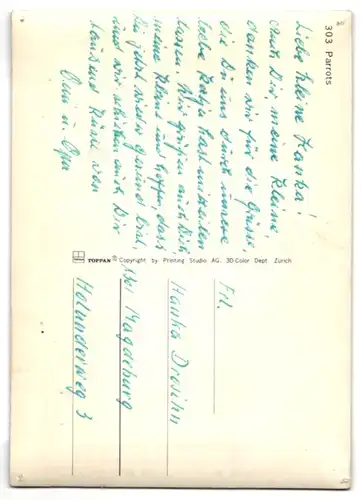 303 Parrots
Liebe kleine Hanka!
Auch Dir meine Kleine,
danken wir für die Grüsse,
die Du uns durch unsere
liebe Katja hast ausrichten
lassen. Wir grüßen auch Dich,
meine Kleine und hoffen, das
Du jetzt wieder gesund bist,
und wir schicken auch Dir
tausend Küsse von
Omi u. Opa
TOPPAN © Copyright by Printing Studio AG. 3D-Color Dept. Zürich
Frl.
Hanka Drosihn
bei Magdeburg
Holunderweg 3